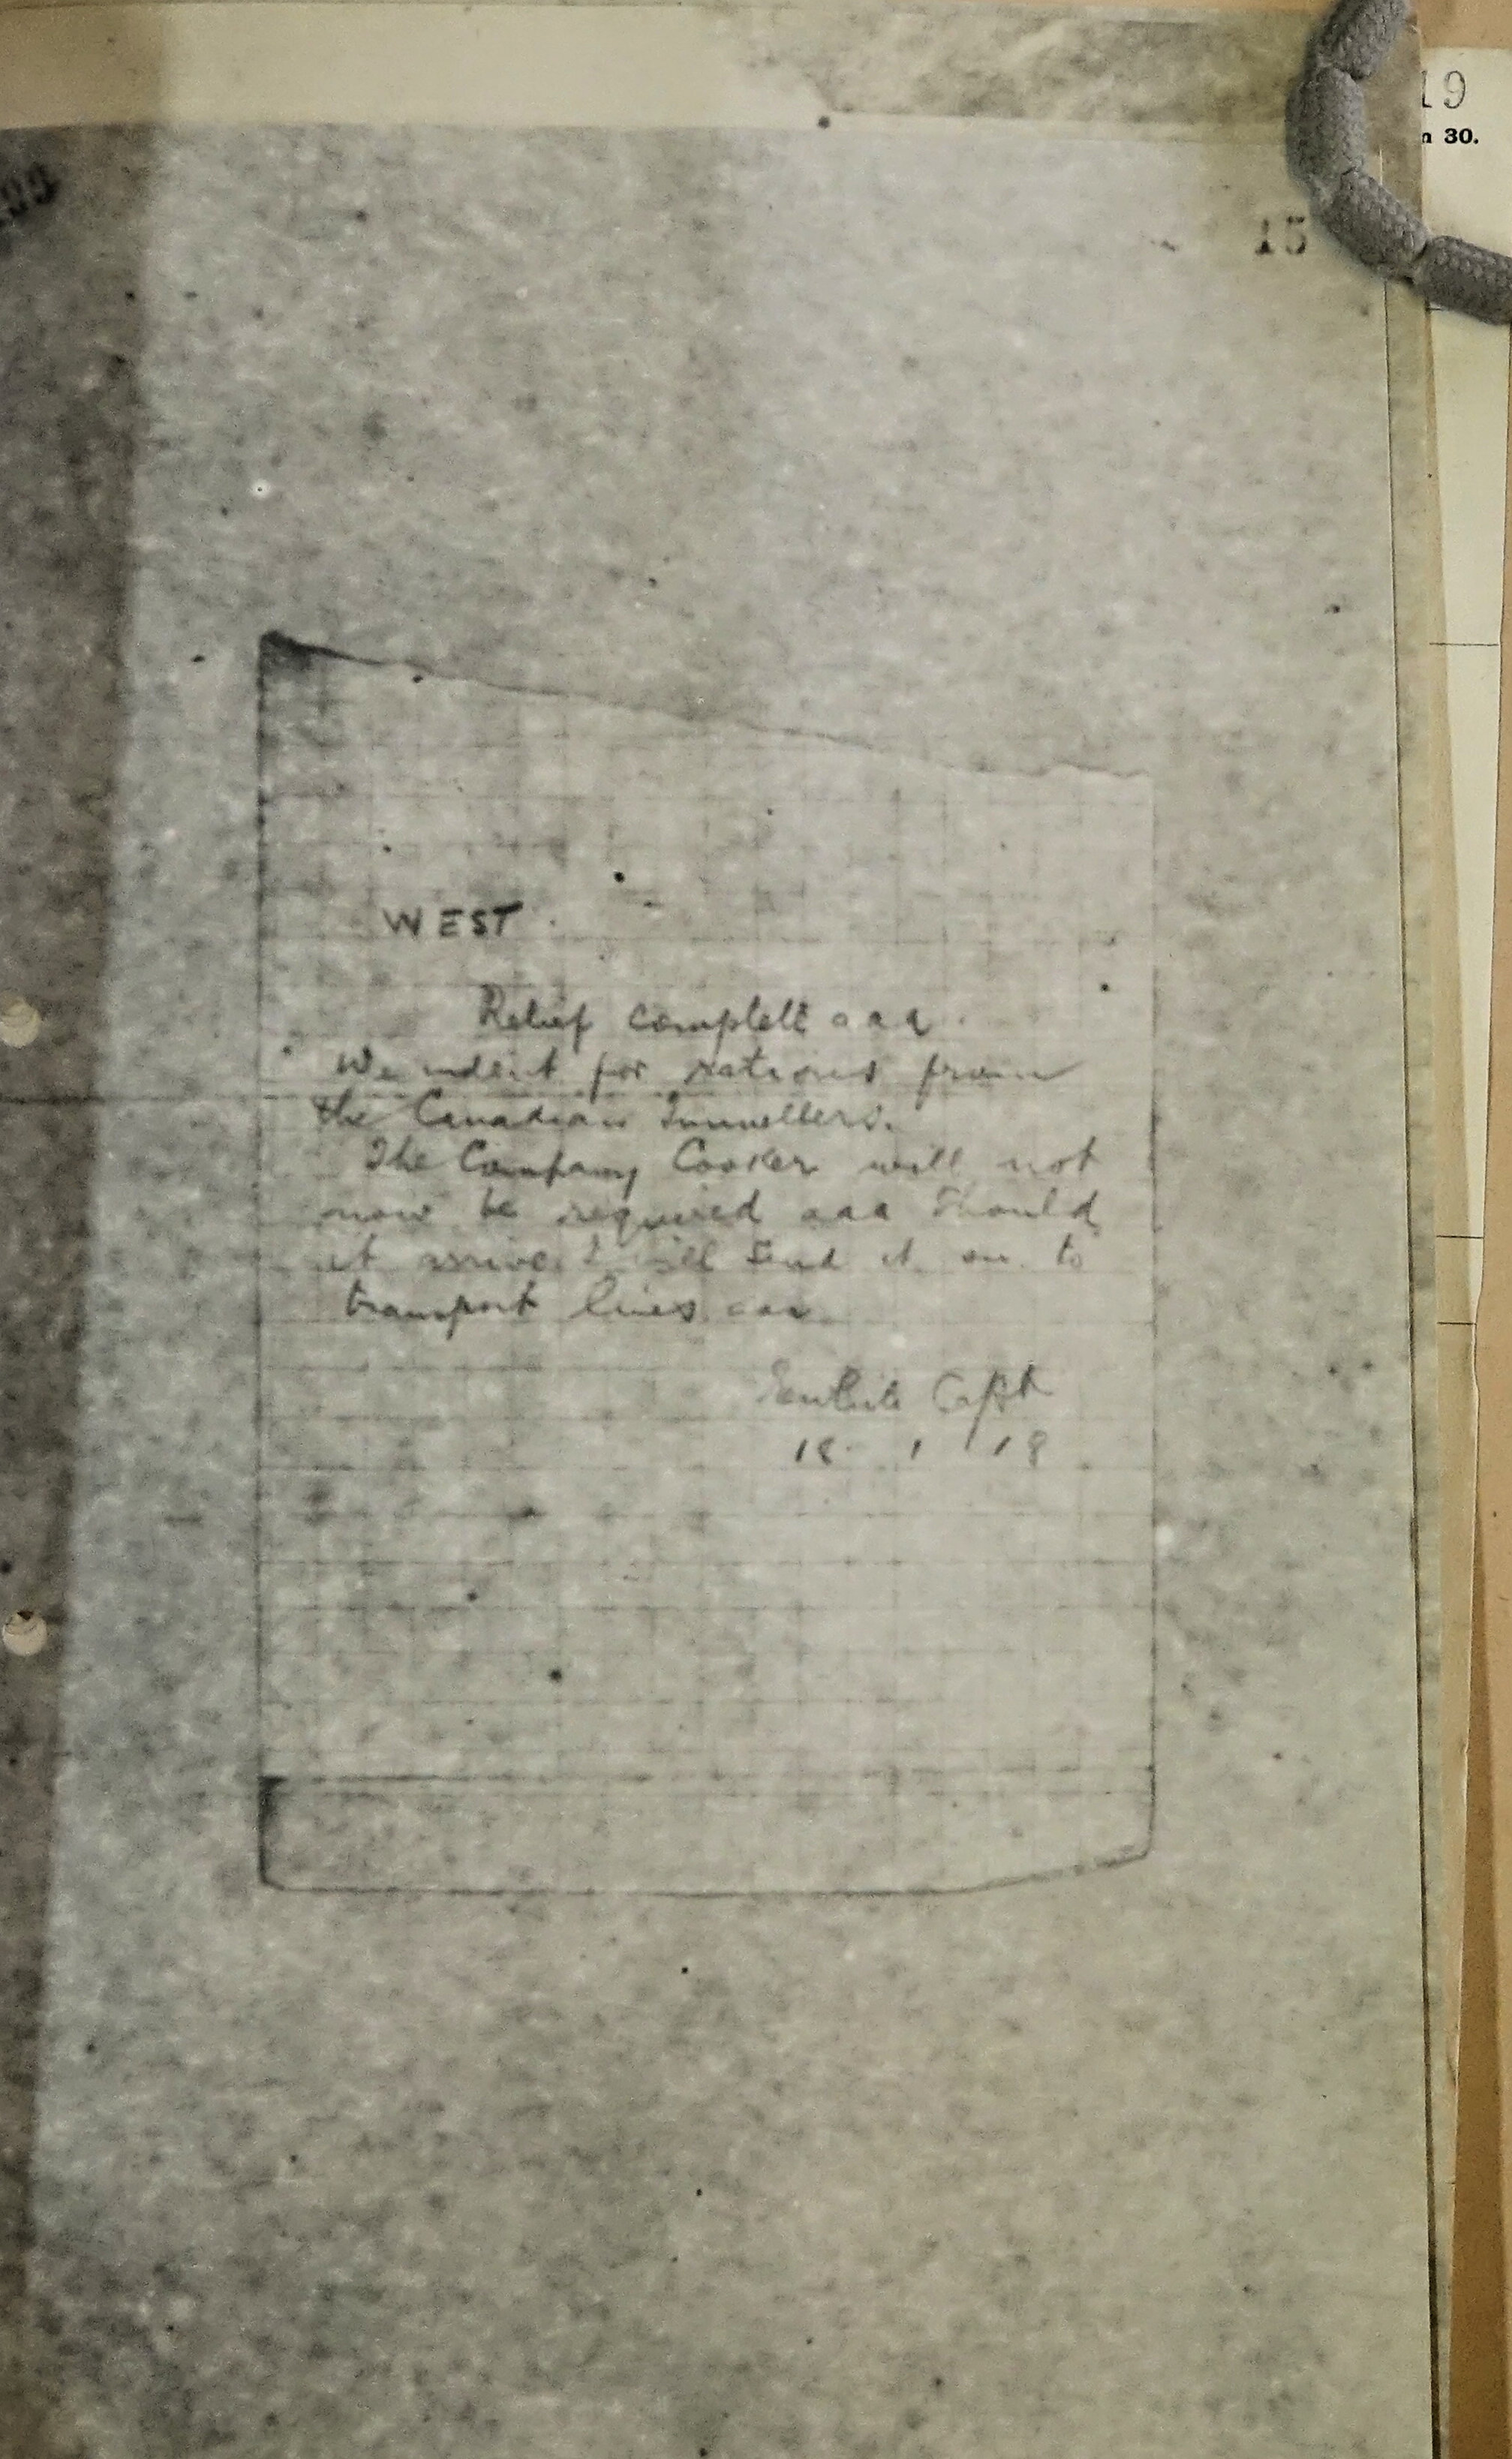 19
30.
15
WEST.
Relief complete aaa.
We indent for rations from
the Canadian Tunnellers.
The Company Cooker will not
now be required aaa Should
it arrive I will send it on to
transport lines aaa
Capt
18 . 1 . 18